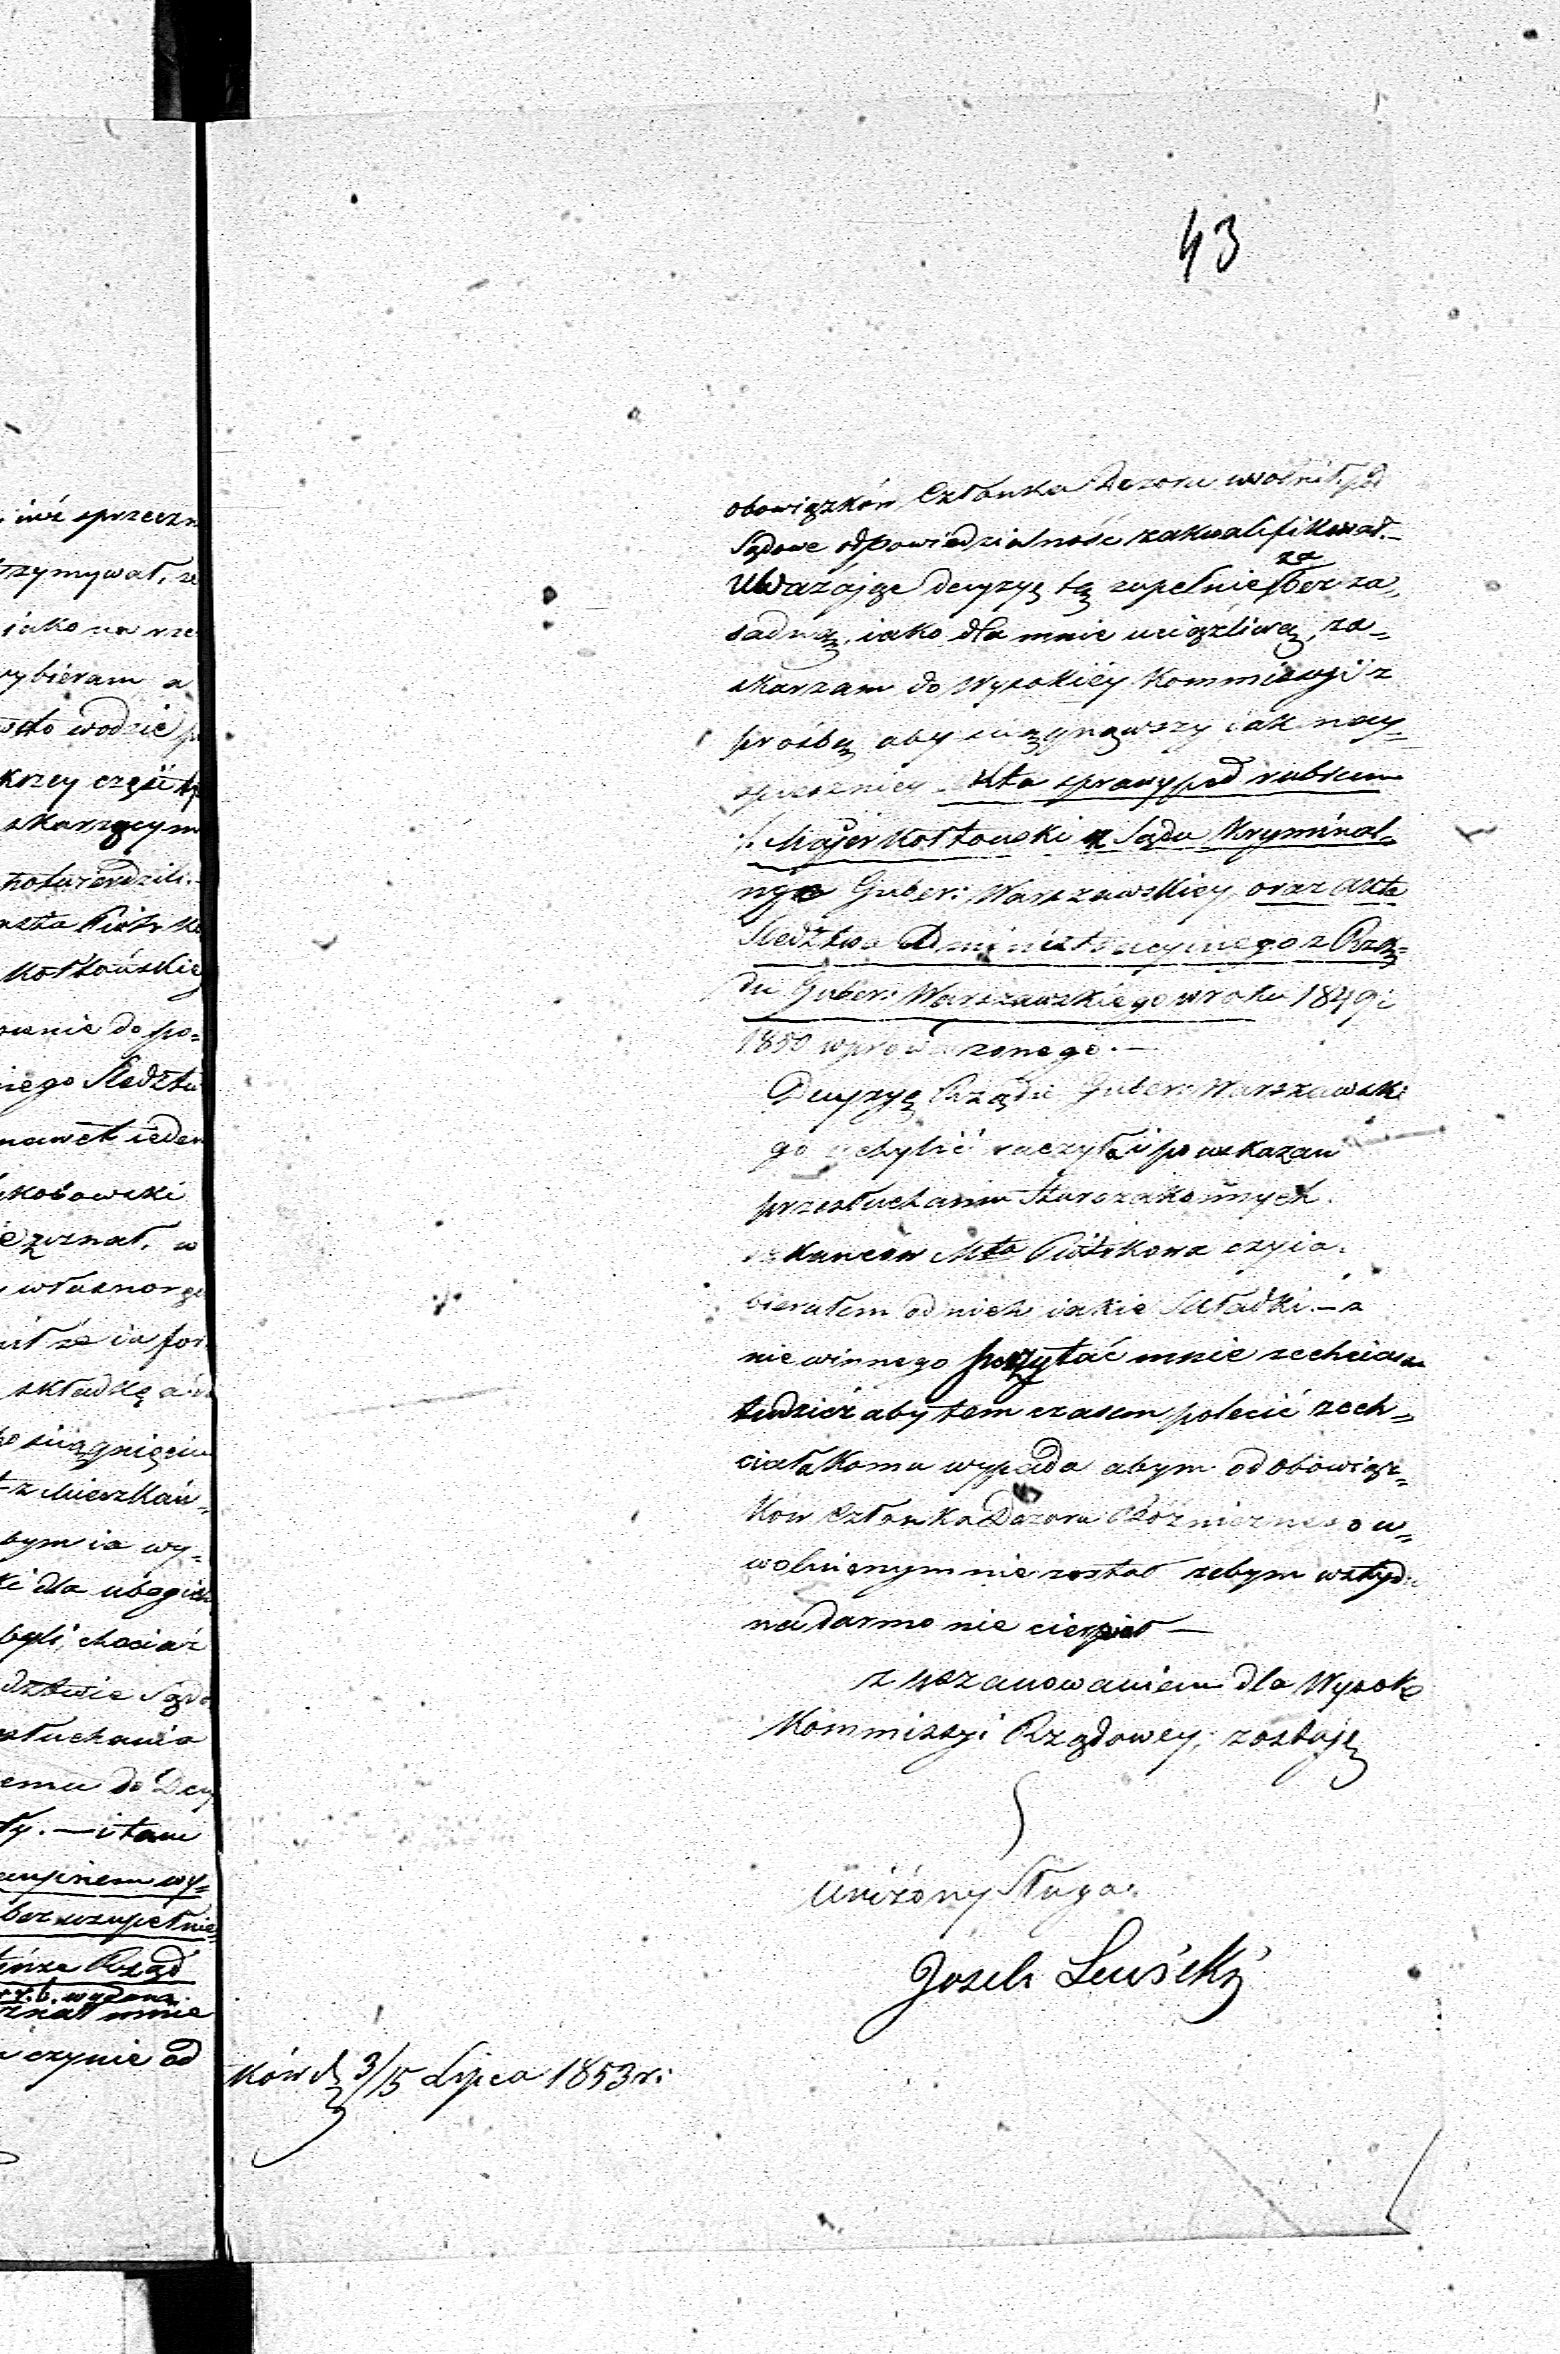 43
obowiązków Członka Dozoru uwolnił pod
Sądowe odpowiedzialność zakwalifikował.—
Uważając decyzyę tę zupełnie za bez za„
sadną, iako dla mnie uciążliwą, za„
skarzam do Wysokiéy Kommissyi z
prośbą aby sciągnąwszy iak nay„
spieszniey Akta sprawy pod rubrum
/: Majer Kołtoński z Sądu Kryminal„
nego Guber: Warszawskiey, oraz akta
Sledztwa Administracyinego z Rzą„
du Guber: Warszawskiego w roku 1849 i
1850 wprowadzonego.—
Decyzyę Rządu Guber: Warszawskie
go uchylić raczyła i po wskazan
przesłuchaniu Starozakonnych
Mta Piotrkowa czy ia
bierałem od nich iakie Składki.— a
niewinnego poczytać mnie zechciała
tudzież aby tem czasem polecić zech„
ciała komu wypada abym od obowiąz„
ków Członka Dozoru Bóżnicznego u„
wolnionym nie został zebym wstydu
na darmo nie cierpiał —
z uszanowaniem dla Wysoke
Kommissyi Rządowey, zostaję
Uniżony Sługa.
Josek
ków d 3/15 Lipca 1853 r:
iuż sprzeczn
trzymywał, ze
iako na rze
wybieram a
krzey częśći
skarzącym
potwierdzili.
Kołtońskie
sunie do po„
nego Sledztw
nawet ieden
zeznał, w
własnorę
składkę a
sciągnięciu
z Mieszkań„
bym ia wy„
ki dla ubogich
byli, chociaż
dztwie Sąd
słuchania
emu do Decy
ły.— i tam
wy„
bez uzupełnie„
Rząd
r. b. wydana.
znał mnie
czynie od